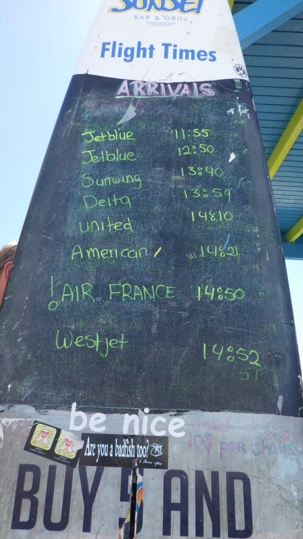 SUNSET
BAR & GRILL
Flight Times
ARRIVALS
Jetblue 11:55
Jetblue 12:50
Sunwing 13:40
Delta 13:59
United 14:10
American 14:21
! AIR FRANCE 14:50
Westjet 14:52
be nice
Are you a badfish too?
BUY 5 AND